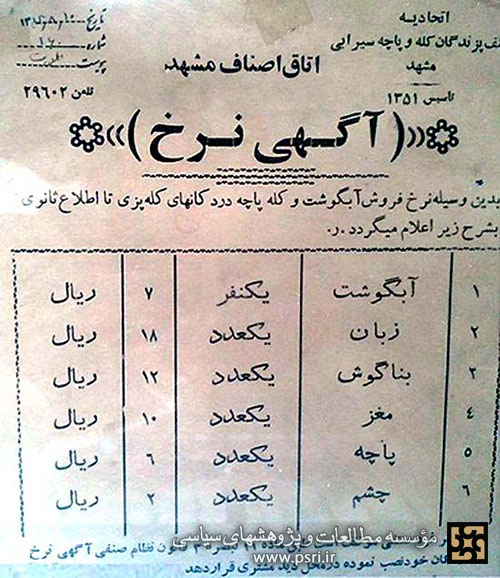 اتحادیه
پزندگان کله و پاچه سیرابی
مشهد
تاسیس ۱۳۵۱
اتاق اصناف مشهد
تاریخ
شماره
پیوست
تلفن ۲۹۶۰۲
«(آگهی نرخ)»
بدین وسیله نرخ فروش آبگوشت و کله پاچه در دکانهای کله‌پزی تا اطلاع ثانوی
بشرح زیر اعلام میگردد .ر.
۱ آبگوشت یکنفر ۷ ریال
۲ زبان یکعدد ۱۸ ریال
۳ بناگوش یکعدد ۱۲ ریال
۴ مغز یکعدد ۱۰ ریال
۵ پاچه یکعدد ۶ ریال
۶ چشم یکعدد ۲ ریال
قانون نظام صنفی آگهی نرخ
خود نصب نموده در محل دید مشتری قرار دهد
مؤسسه مطالعات و پژوهشهای سیاسی
www.psri.ir